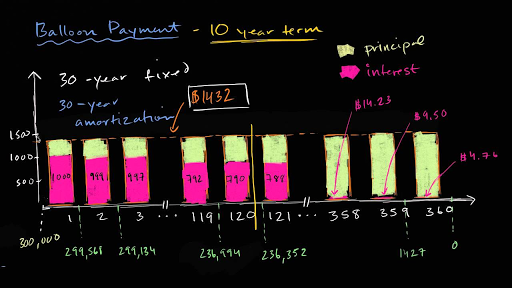 Balloon Payment - 10 year term
principal
interest
30-year fixed
30-year
amortization
$1432
$14.23
$9.50
$4.76
1500
1000
500
1000
999
997
792
790
788
1 2 3 ... 119 120 121 ... 358 359 360
300,000
299,568
299,134
236,994
236,352
1427
0